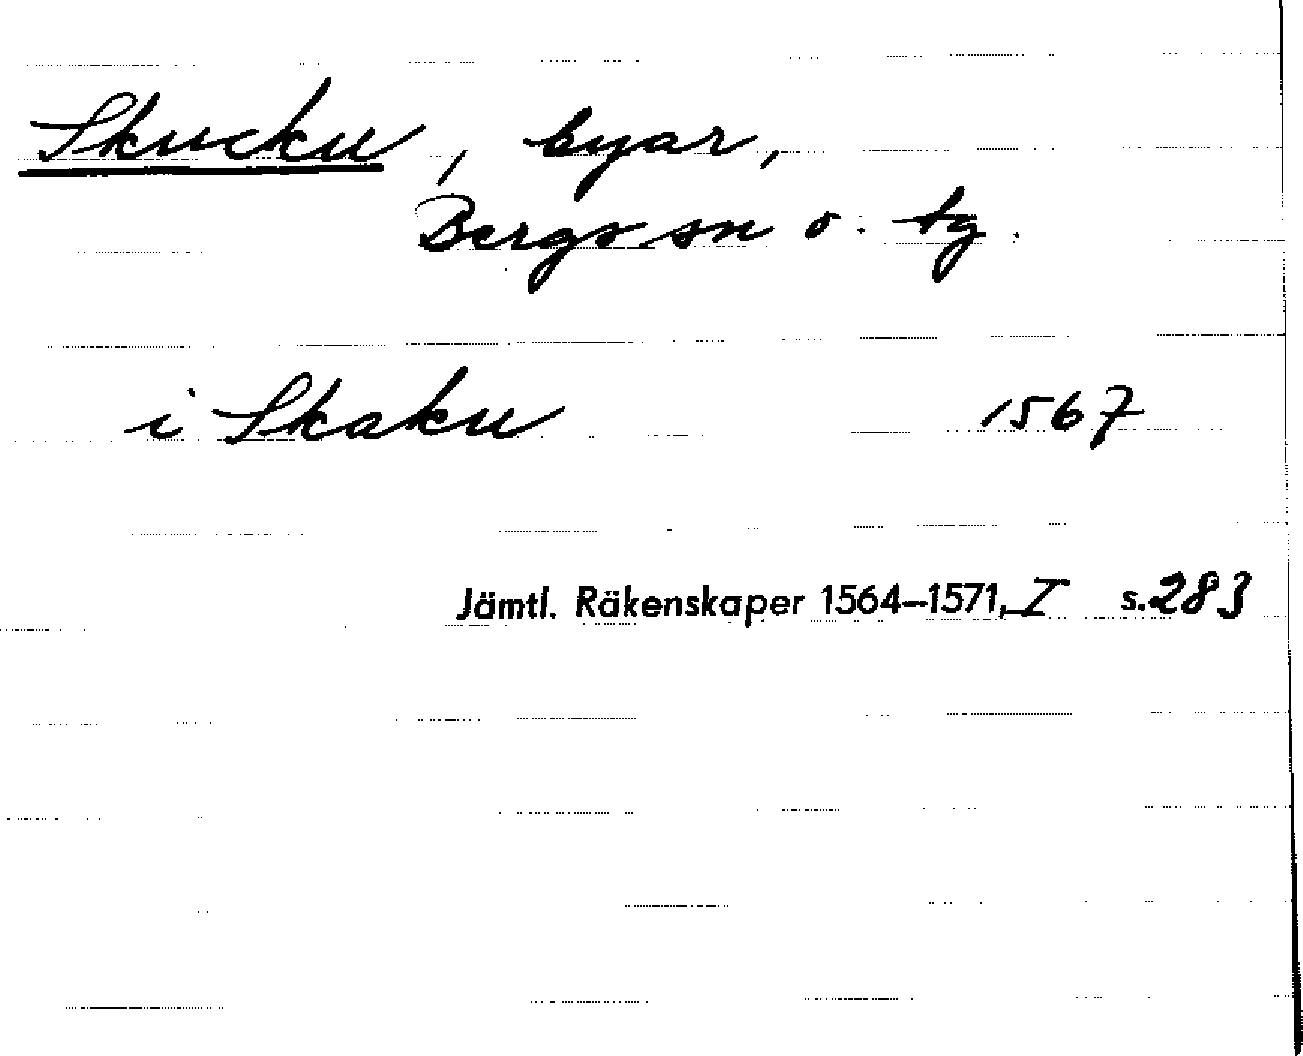 Skucku, byar,
Bergs sn o. tg.
i Skaku 1567
Jämtl. Räkenskaper 1564–1571, I s. 283